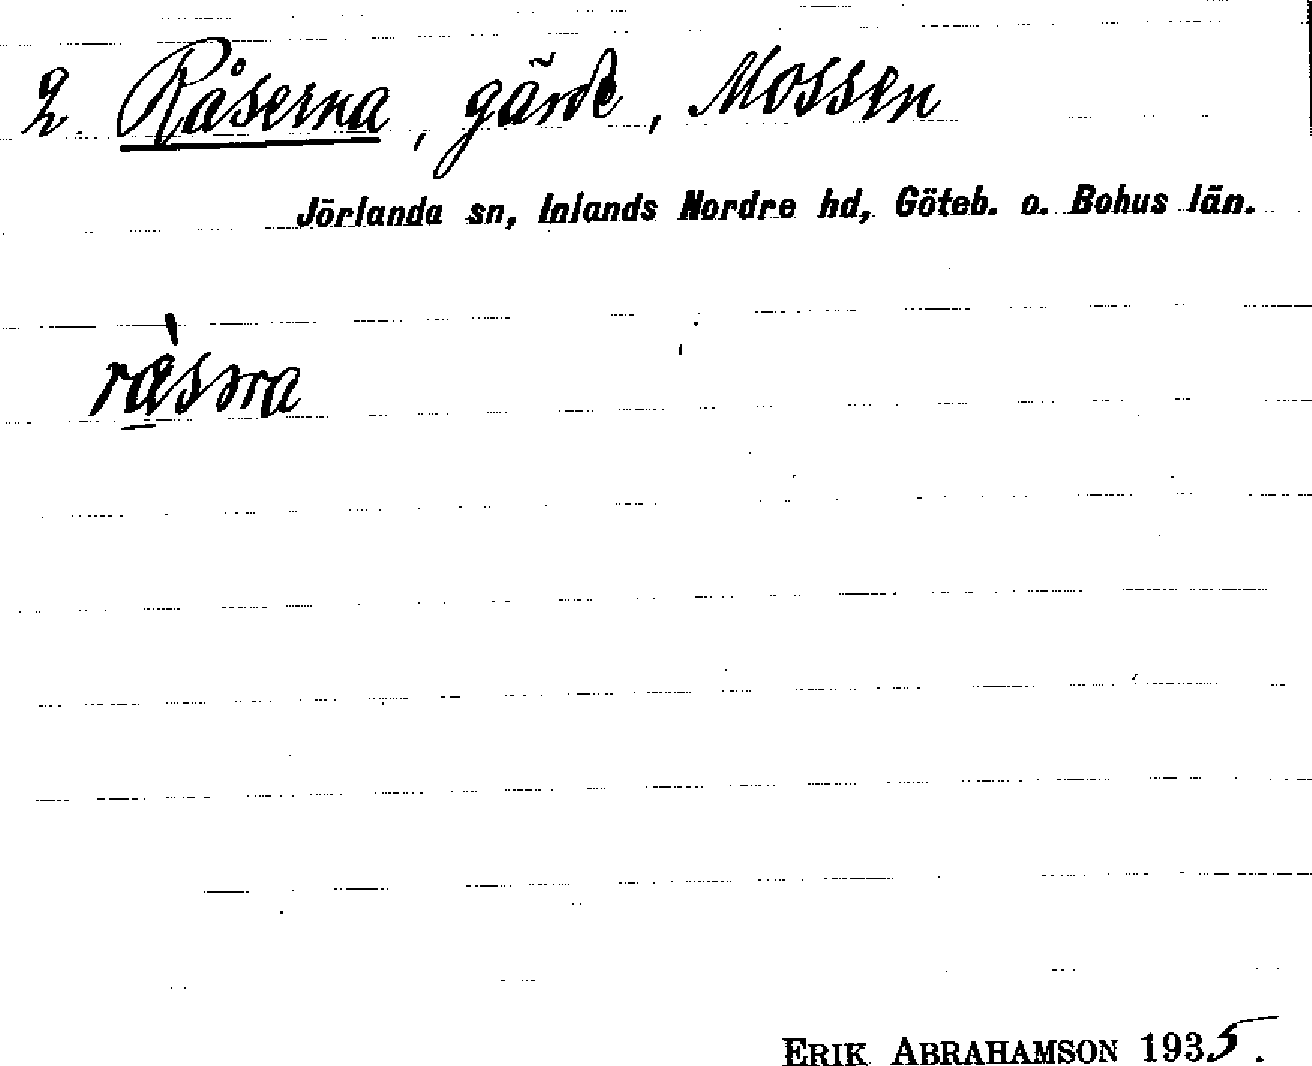 2. Råserna, gärde, Mossen
Jörlanda sn, Inlands Nordre hd, Göteb. o. Bohus län.
ERIK ABRAHAMSON 1935.